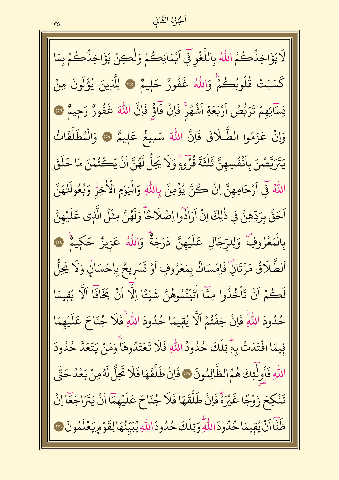 الجزء الثاني
٣٥
لَا يُؤَاخِذُكُمُ اللّٰهُ بِاللَّغْوِ فِٓي اَيْمَانِكُمْ وَلٰكِنْ يُؤَاخِذُكُمْ بِمَا
كَسَبَتْ قُلُوبُكُمْ وَاللّٰهُ غَفُورٌ حَلِيمٌ ۝ لِلَّذِينَ يُؤْلُونَ مِنْ
نِسَٓائِهِمْ تَرَبُّصُ اَرْبَعَةِ اَشْهُرٍ فَاِنْ فَٓاؤُ فَاِنَّ اللّٰهَ غَفُورٌ رَحِيمٌ ۝
وَاِنْ عَزَمُوا الطَّلَاقَ فَاِنَّ اللّٰهَ سَمِيعٌ عَلِيمٌ ۝ وَالْمُطَلَّقَاتُ
يَتَرَبَّصْنَ بِاَنْفُسِهِنَّ ثَلٰثَةَ قُرُٓوءٍ وَلَا يَحِلُّ لَهُنَّ اَنْ يَكْتُمْنَ مَا خَلَقَ
اللّٰهُ فِٓي اَرْحَامِهِنَّ اِنْ كُنَّ يُؤْمِنَّ بِاللّٰهِ وَالْيَوْمِ الْاٰخِرِ وَبُعُولَتُهُنَّ
اَحَقُّ بِرَدِّهِنَّ فِي ذٰلِكَ اِنْ اَرَادُٓوا اِصْلَاحًا وَلَهُنَّ مِثْلُ الَّذِي عَلَيْهِنَّ
بِالْمَعْرُوفِ وَلِلرِّجَالِ عَلَيْهِنَّ دَرَجَةٌ وَاللّٰهُ عَزِيزٌ حَكِيمٌ ۝
اَلطَّلَاقُ مَرَّتَانِ فَاِمْسَاكٌ بِمَعْرُوفٍ اَوْ تَسْرِيحٌ بِاِحْسَانٍ وَلَا يَحِلُّ
لَكُمْ اَنْ تَأْخُذُوا مِمَّٓا اٰتَيْتُمُوهُنَّ شَيْئًا اِلَّٓا اَنْ يَخَافَٓا اَلَّا يُقِيمَا
حُدُودَ اللّٰهِ فَاِنْ خِفْتُمْ اَلَّا يُقِيمَا حُدُودَ اللّٰهِ فَلَا جُنَاحَ عَلَيْهِمَا
فِيمَا افْتَدَتْ بِهِ تِلْكَ حُدُودُ اللّٰهِ فَلَا تَعْتَدُوهَا وَمَنْ يَتَعَدَّ حُدُودَ
اللّٰهِ فَاُولٰٓئِكَ هُمُ الظَّالِمُونَ ۝ فَاِنْ طَلَّقَهَا فَلَا تَحِلُّ لَهُ مِنْ بَعْدُ حَتّٰى
تَنْكِحَ زَوْجًا غَيْرَهُ فَاِنْ طَلَّقَهَا فَلَا جُنَاحَ عَلَيْهِمَٓا اَنْ يَتَرَاجَعَٓا اِنْ
ظَنَّٓا اَنْ يُقِيمَا حُدُودَ اللّٰهِ وَتِلْكَ حُدُودُ اللّٰهِ يُبَيِّنُهَا لِقَوْمٍ يَعْلَمُونَ ۝